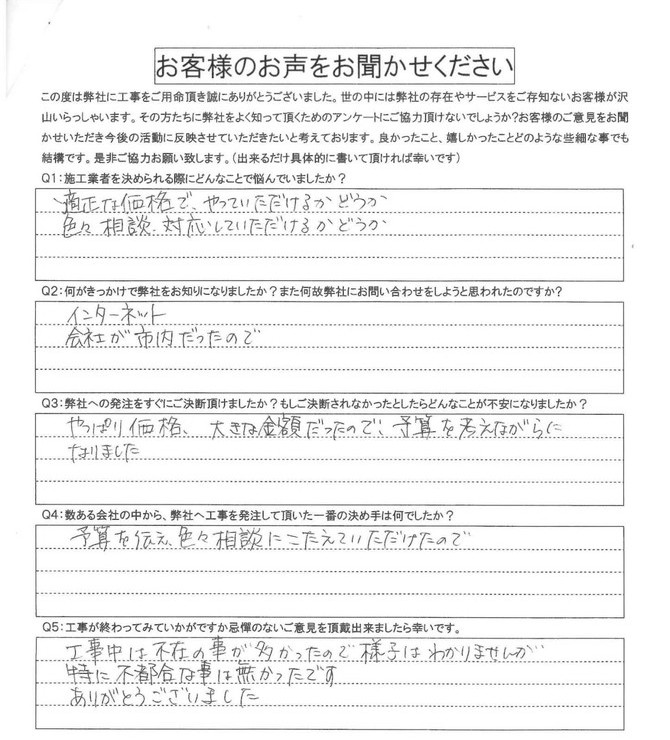 お客様のお声をお聞かせください
この度は弊社に工事をご用命頂き誠にありがとうございました。世の中には弊社の存在やサービスをご存知ないお客様が沢
山いらっしゃいます。その方たちに弊社をよく知って頂くためのアンケートにご協力頂けないでしょうか?お客様のご意見をお聞
かせいただき今後の活動に反映させていただきたいと考えております。良かったこと、嬉しかったことどのような些細な事でも
結構です。是非ご協力お願い致します。(出来るだけ具体的に書いて頂ければ幸いです)
Q1:施工業者を決められる際にどんなことで悩んでいましたか?
適正な価格で、やっていただけるかどうか
色々相談、対応していただけるかどうか
Q2:何がきっかけで弊社をお知りになりましたか?また何故弊社にお問い合わせをしようと思われたのですか?
インターネット
会社が市内だったので
Q3:弊社への発注をすぐにご決断頂けましたか?もしご決断されなかったとしたらどんなことが不安になりましたか?
やっぱり価格、大きな金額だったので、予算を考えながらに
なりました
Q4:数ある会社の中から、弊社へ工事を発注して頂いた一番の決め手は何でしたか?
予算を伝え、色々相談にこたえていただけたので
Q5:工事が終わってみていかがですか忌憚のないご意見を頂戴出来ましたら幸いです。
工事中は不在の事が多かったので様子はわかりませんが…
特に不都合な事は無かったです
ありがとうございました